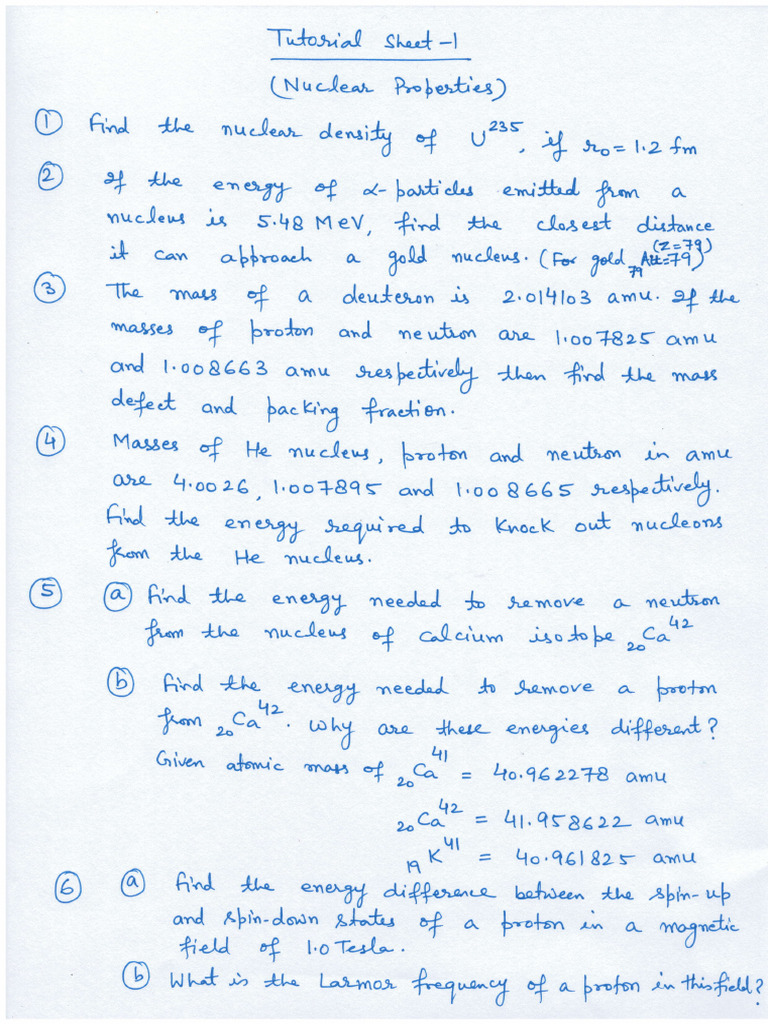 Tutorial Sheet-1
(Nuclear Properties)
① Find the nuclear density of U²³⁵, if r₀ = 1.2 fm
② If the energy of α-particles emitted from a
nucleus is 5.48 MeV, find the closest distance
it can approach a gold nucleus. (For gold Z=79)
③ The mass of a deuteron is 2.014103 amu. If the
masses of proton and neutron are 1.007825 amu
and 1.008663 amu respectively then find the mass
defect and packing fraction.
④ Masses of He nucleus, proton and neutron in amu
are 4.0026, 1.007895 and 1.008665 respectively.
Find the energy required to knock out nucleons
from the He nucleus.
⑤ ⓐ Find the energy needed to remove a neutron
from the nucleus of calcium isotope ₂₀Ca⁴²
ⓑ Find the energy needed to remove a proton
from ₂₀Ca⁴². Why are these energies different?
Given atomic mass of ₂₀Ca⁴¹ = 40.962278 amu
₂₀Ca⁴² = 41.958622 amu
₁₉K⁴¹ = 40.961825 amu
⑥ ⓐ Find the energy difference between the spin-up
and spin-down states of a proton in a magnetic
field of 1.0 Tesla.
ⓑ What is the Larmor frequency of a proton in this field?